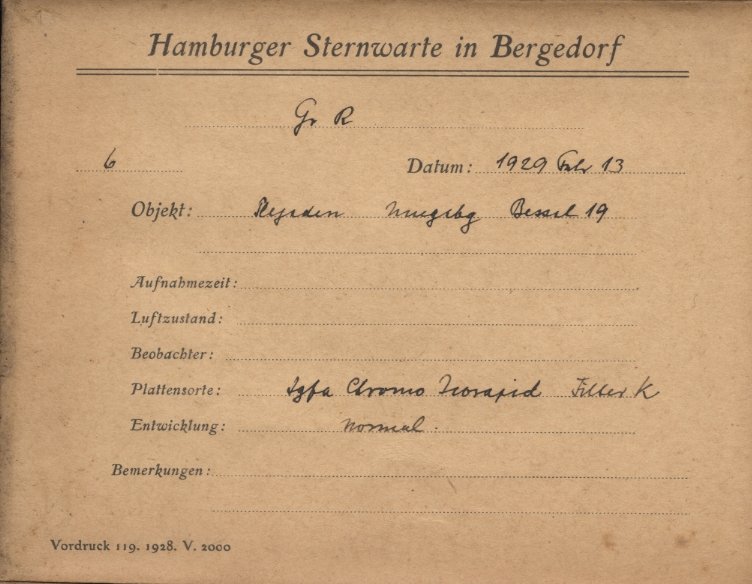 Hamburger Sternwarte in Bergedorf
Gr R
6 Datum: 1929 Febr 13
Objekt: Plejaden Umgebg Bessel 19
Aufnahmezeit:
Luftzustand:
Beobachter:
Plattensorte: Agfa Chromo Isorapid Filter K
Entwicklung: normal.
Bemerkungen:
Vordruck 119. 1928. V. 2000